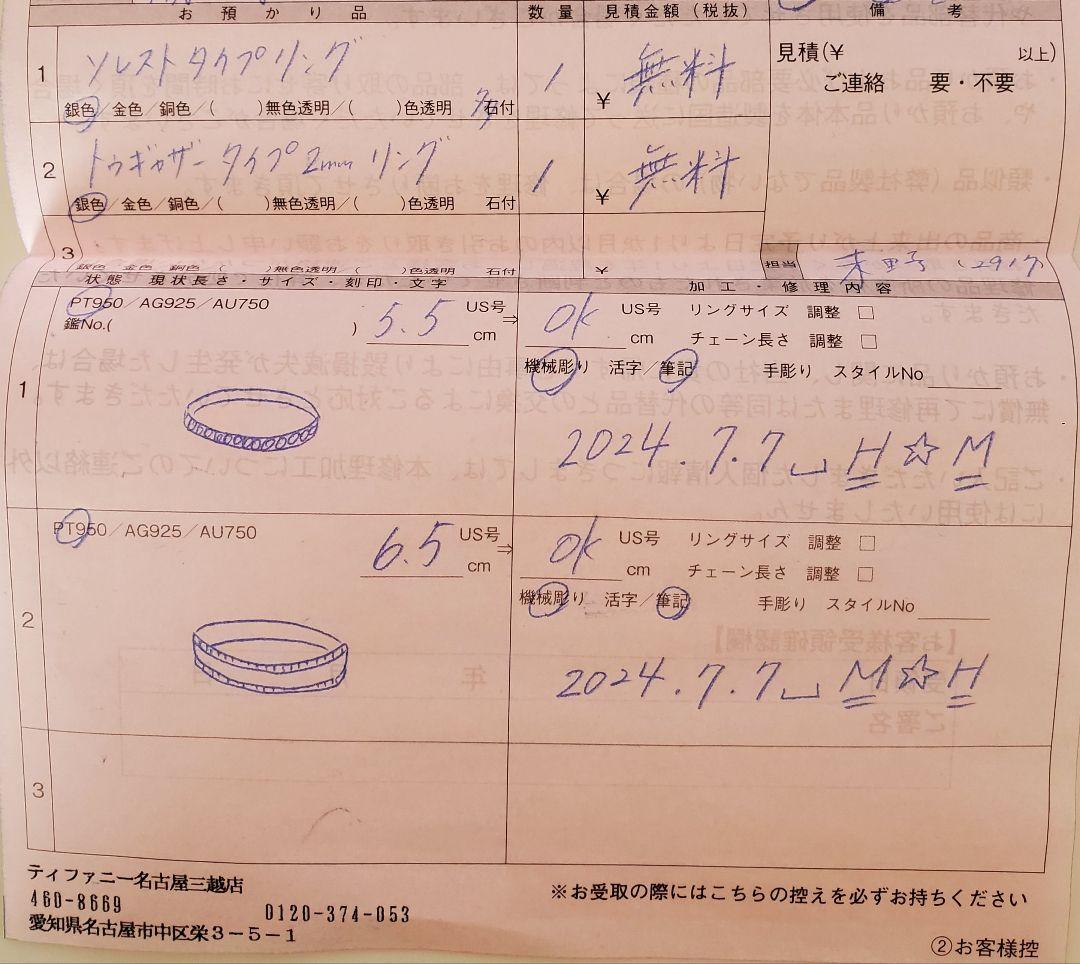 お預かり品 数量 見積金額(税抜) 備考
1 ソレスト タイプ リング 1 ¥ 無料 見積(¥ 以上)
ご連絡 要・不要
銀色/金色/銅色/( )無色透明/( )色透明 石付
2 トゥギャザー タイプ 2mm リング 1 ¥ 無料
銀色/金色/銅色/( )無色透明/( )色透明 石付
3 ¥
銀色 金色 銅色 ( )無色透明/( )色透明 石付
担当
状態 現状長さ・サイズ・刻印・文字 加工・修理内容
1 PT950/AG925/AU750 5.5 US号 ⇒ OK US号 リングサイズ 調整 □
鑑No.( ) cm cm チェーン長さ 調整 □
機械彫り 活字/筆記 手彫り スタイルNo
2024.7.7 ␣ H☆M
2 PT950/AG925/AU750 6.5 US号 ⇒ OK US号 リングサイズ 調整 □
cm cm チェーン長さ 調整 □
機械彫り 活字/筆記 手彫り スタイルNo
2024.7.7 ␣ M☆H
3
ティファニー名古屋三越店
460-8669 0120-374-053
愛知県名古屋市中区栄3-5-1
※お受取の際にはこちらの控えを必ずお持ちください
②お客様控